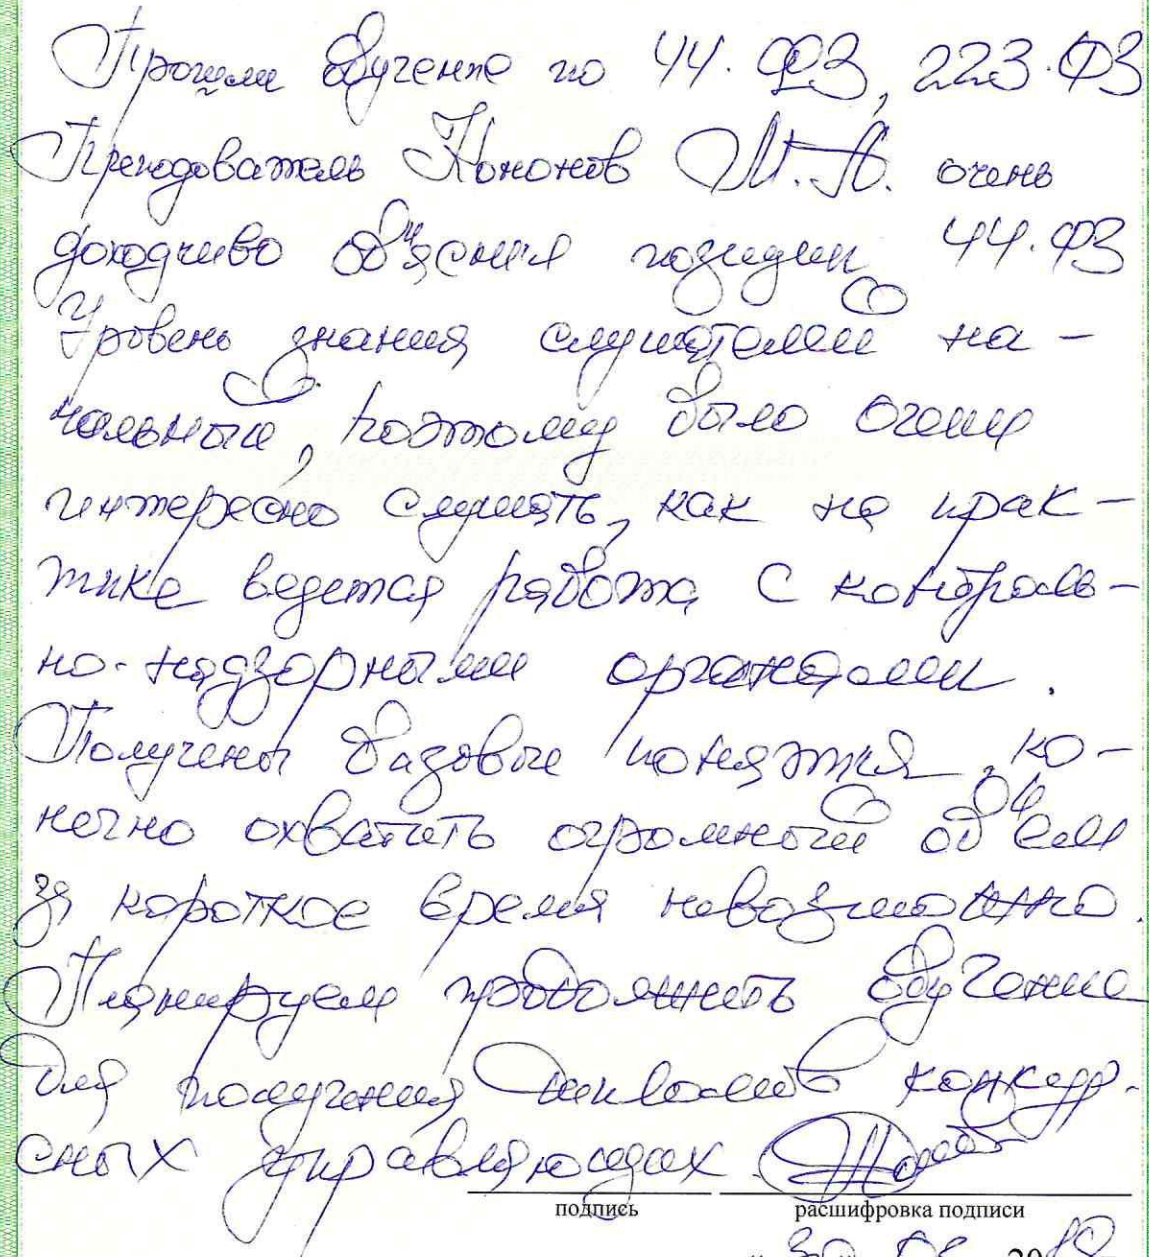 Прошли обучение по 44-ФЗ, 223-ФЗ
Преподователь Кононов М.А. очень
доходчиво объяснил позиции 44-ФЗ
Уровень знания слушателей на-
чальный, поэтому было очень
интересно слушать, как на прак-
тике ведется работа с контроль-
но-надзорными органами.
Получены базовые понятия, ко-
нечно охватить огромный объем
за короткое время невозможно.
Планируем продолжить обучение
для получения диплома конкур-
сных управляющих.
подпись расшифровка подписи